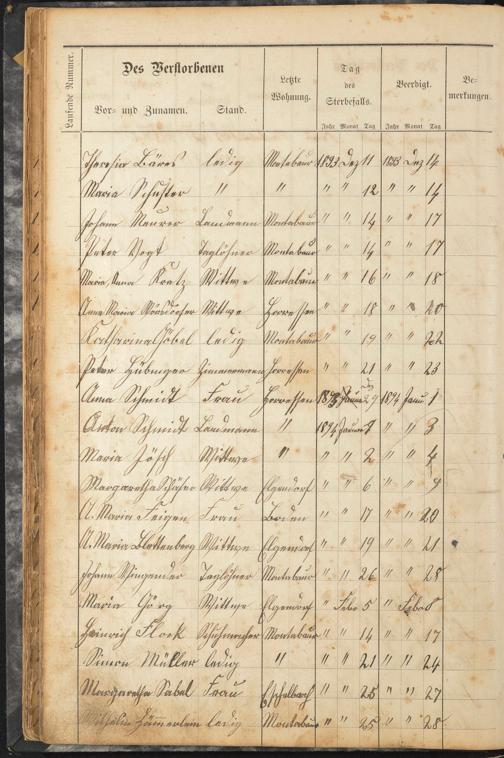 Laufende Nummer.
Des Verstorbenen
Vor- und Zunamen. Stand.
Letzte Wohnung.
Tag des Sterbefalls.
Beerdigt.
Be-merkungen.
Jahr Monat Tag Jahr Monat Tag
Theresia ledig Montabaur 1893 Dez 11 1893 Dez 14
Maria Schuster " " " " 12 " " 14
Johann Maurer Landmann Montabaur " " 14 " " 17
Peter Vogt Taglöhner Montabaur " " 14 " " 17
Maria Anna Kratz Wittwe Montabaur " " 16 " " 18
Anna Maria Wittwe Horressen " " 18 " " 20
Katharina ledig Montabaur " " 19 " " 22
Peter Hübinger Zimmermann Horressen " " 21 " " 23
Anna Schmidt Frau Horressen 29 1894 Janu 1
Anton Schmidt Landmann " 1894 Januar 1 " " 3
Maria Wittwe " " " 2 " " 4
Margaretha Schäfer Wittwe Elgendorf " " 6 " " 9
A. Maria Feigen Frau Boden " " 17 " " 20
A. Maria Wittwe Elgendorf " " 19 " " 21
Johann Taglöhner Montabaur " " 26 " " 28
Maria Görg Wittwe Elgendorf " Febr 5 " Febr 8
Heinrich Flock Schuhmacher Montabaur " " 14 " " 17
Simon Müller ledig " " " 21 " " 24
Margaretha Sabel Frau Eschelbach " " 25 " " 27
Wilhelm Hämmerlein ledig Montabaur " " 25 " " 28